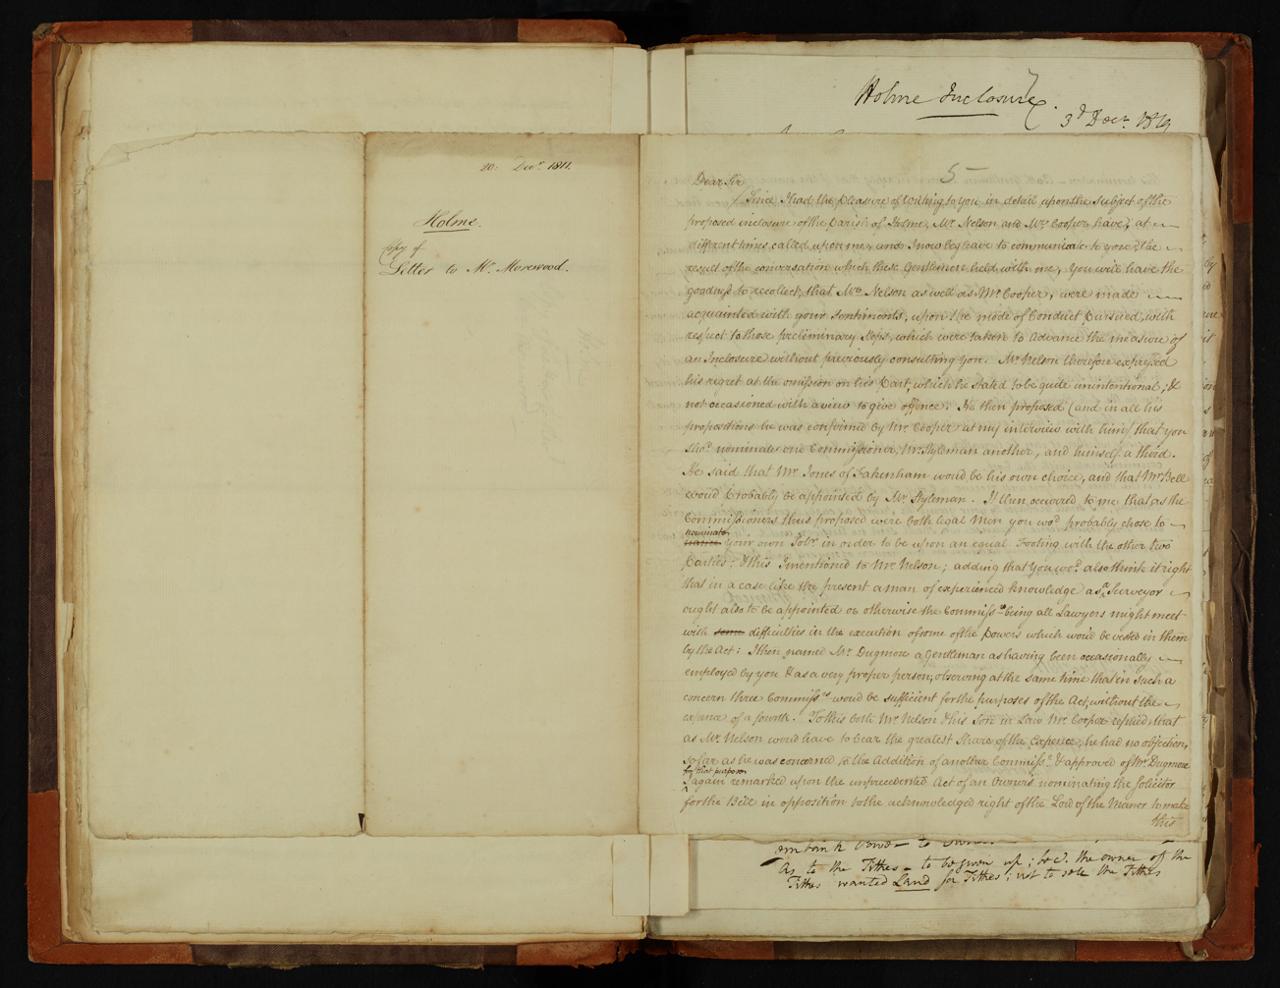 20: Decr. 1811.
Holme.
Copy of
Letter to Mr. Morewood.
Holme Inclosure.
3d Decr.
5
Dear Sir
Since I had the Pleasure of Writing to you in detail upon the subject of the
proposed inclosure of the Parish of Holme, Mr. Nelson and Mr. Cooper have, at
different times called upon me, and I now beg leave to communicate to you, the
result of the conversation which these Gentlemen held with me, You will have the
goodness to recollect, that Mr. Nelson as well as Mr. Cooper, were made
acquainted with your sentiments, upon the mode of Conduct pursued, with
respect to those preliminary steps, which were taken to advance the measure of
an Inclosure without previously consulting you. Mr. Nelson therefore expressed
his regret at the omission on his Part, which he stated to be quite unintentional; &
not occasioned with a view to give offence. He then proposed (and in all his
propositions he was confirmed by Mr. Cooper at my interview with him) that you
shod. nominate one Commissioner, Mr. Styleman another, and himself a third.
He said that Mr. Jones of Fakenham would be his own choice, and that Mr. Bell
would Probably be appointed by Mr. Styleman. It then occurred to me that as the
Commissioners thus proposed were both legal Men you wod. probably chose to
nominate
your own Solr. in order to be upon an equal Footing with the other two
Parties: & this I mentioned to Mr. Nelson; adding that You wod. also think it right
that in a case like the present a man of experienced knowledge as a Surveyor
ought also to be appointed or otherwise the Commissrs. being all Lawyers might meet
with some difficulties in the execution of some of the Powers which would be vested in them
by the Act: I then named Mr. Dugmore a Gentleman as having been occasionally
employed by you & as a very proper person; observing at the same time that in such a
concern three Commissrs. would be sufficient for the purposes of the Act, without the
expence of a fourth. To this both Mr. Nelson & his Son in Law Mr. Cooper replied, that
as Mr. Nelson would have to bear the greatest Share of the Expence, he had no objection,
so far as he was concerned to the Addition of another Commissr. & approved of Mr. Dugmore
for that purpose
I again remarked upon the unprecedented Act of an Owner nominating the Solicitor
for the Bill in opposition to the acknowledged right of the Lord of the Manor to make
this
As to the Tithes - to be given up; the owner of the
Tithes wanted Land for Tithes; not to sell the Tithes